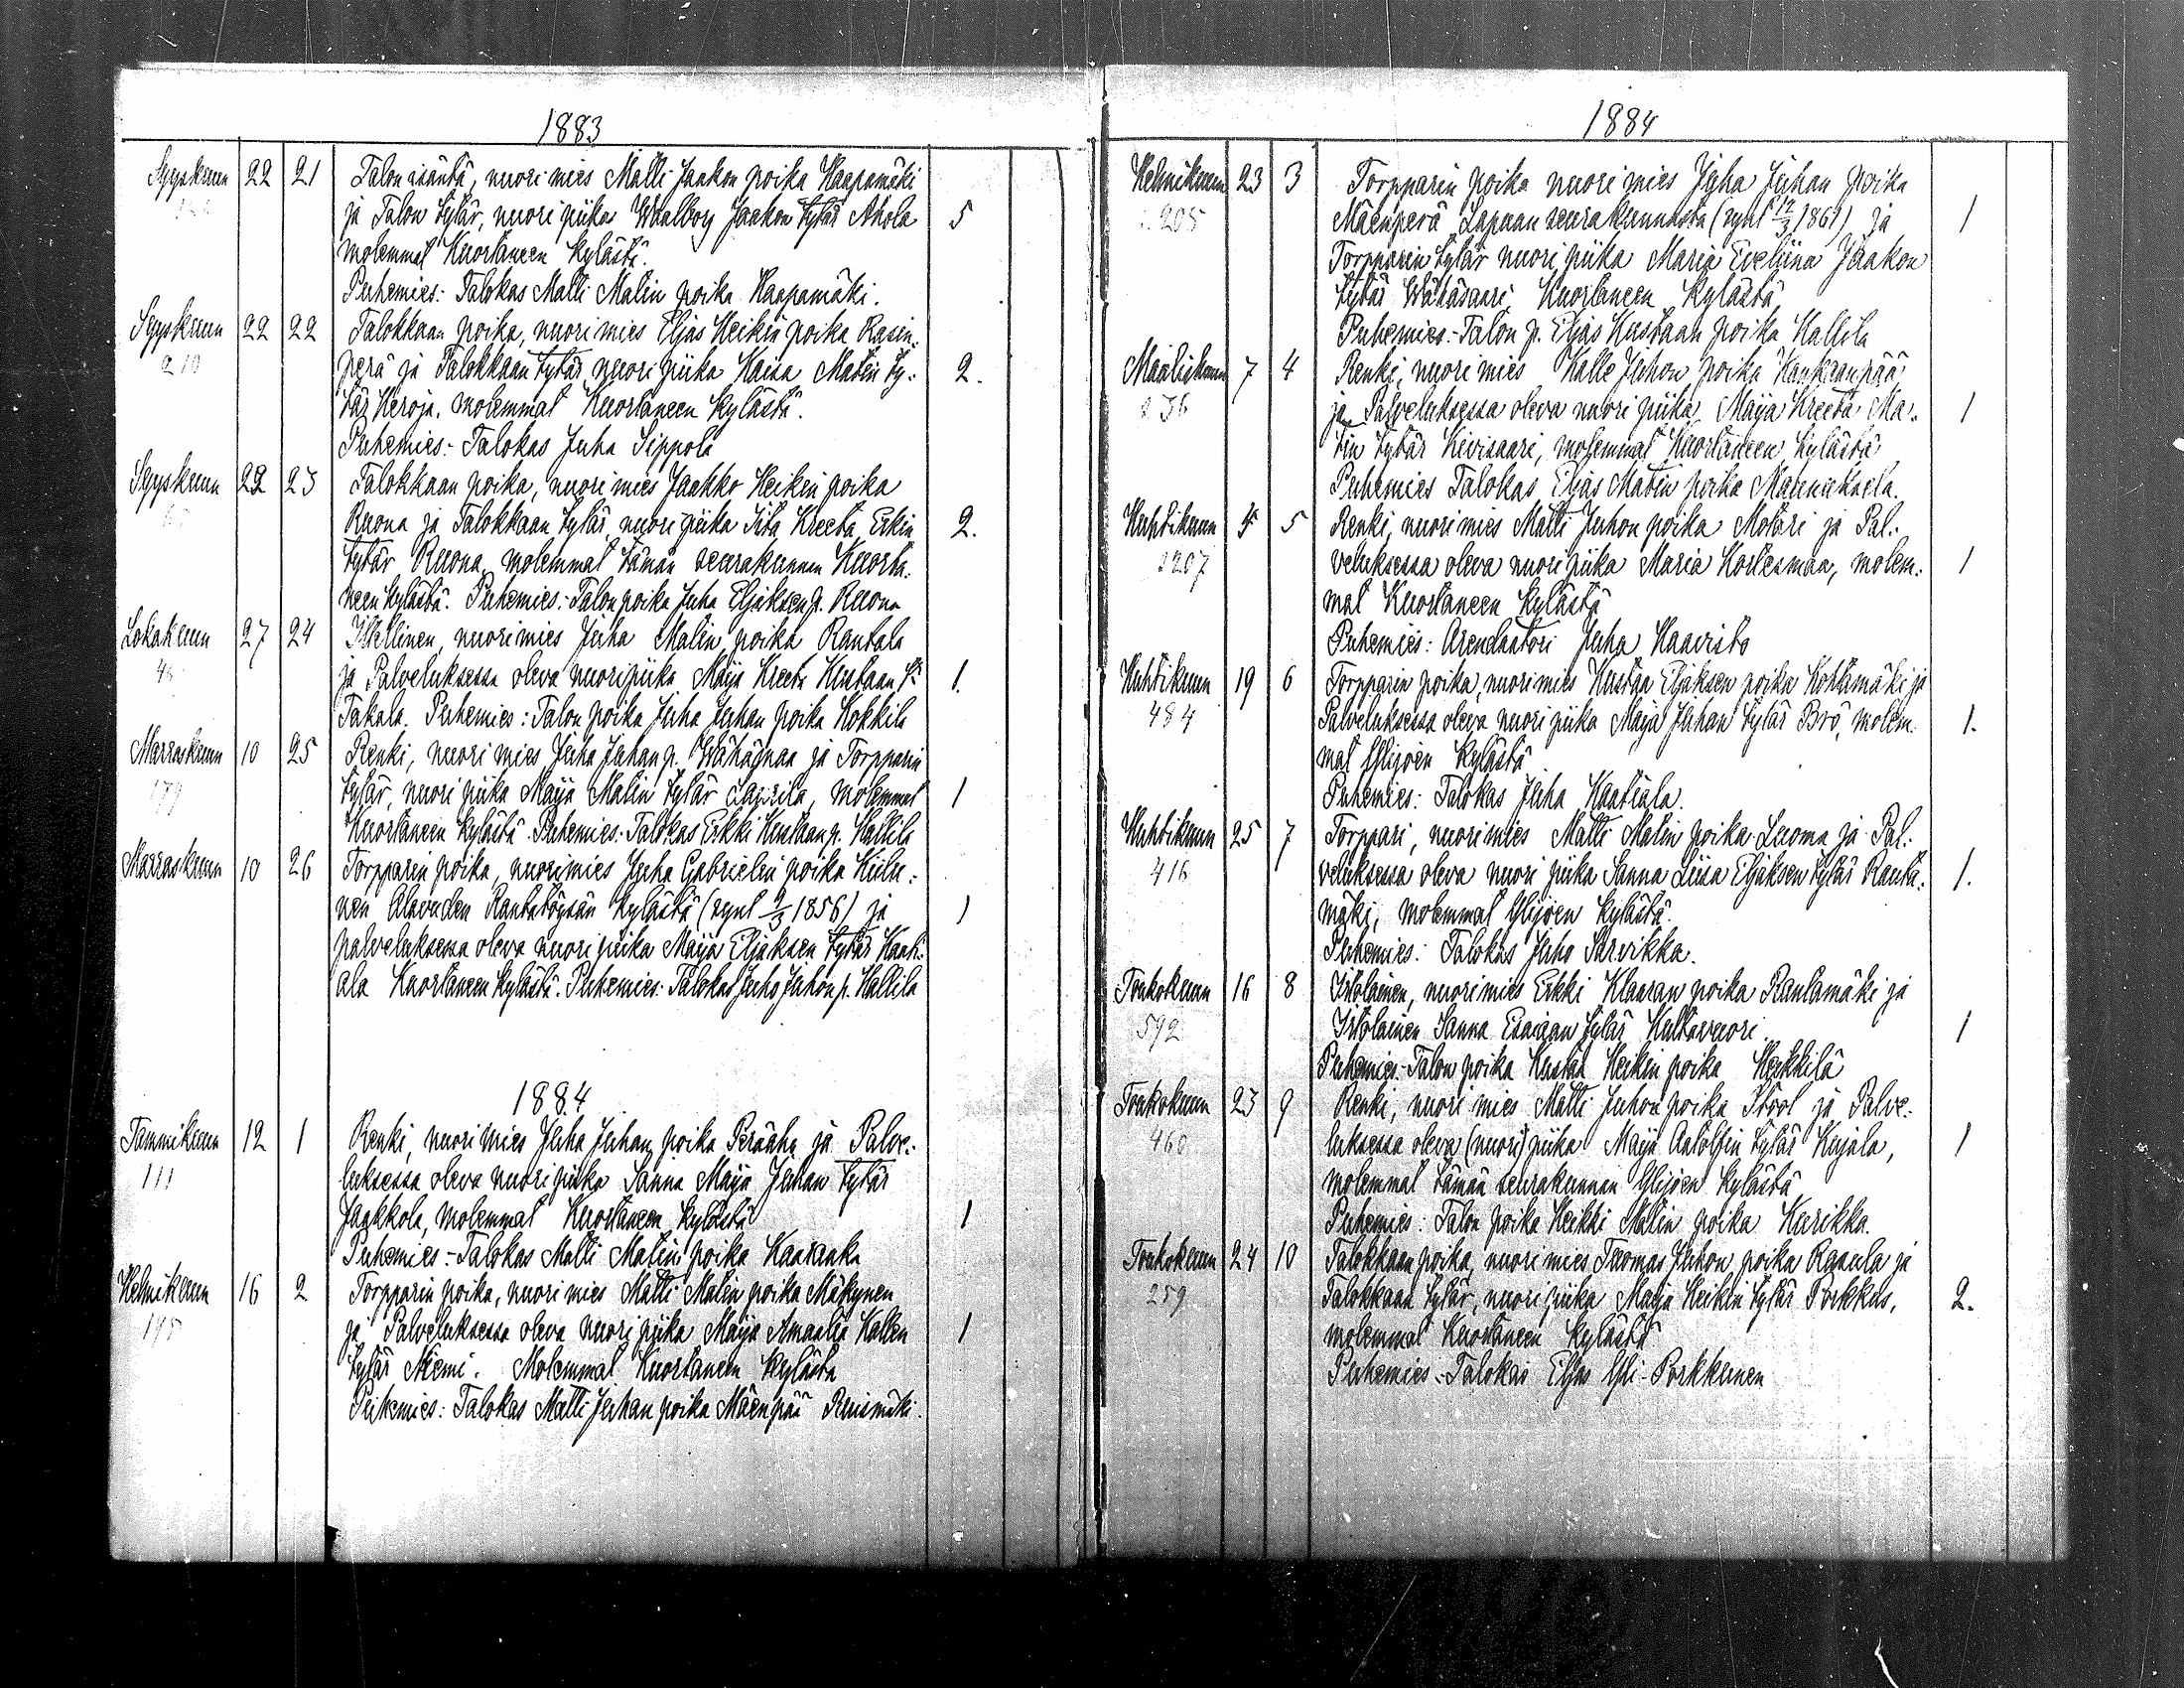 1883
Syyskuun 22 21 Talon isäntä, nuori mies Matti Jaakon poika Haapamäki
ja Talon tytär, nuori piika Waalbory Jaakon tytär Ahola 5
molemmat Kuortaneen kylästä.
Puhemies: Talokas Matti Matin poika Haapamäki.
Syyskuun 22 22 Talokkaan poika, nuori mies Eljas Heikin poika Rasin-
210 perä ja Talokkaan tytär nuori piika Kaisa Matin ty- 2.
tär Heroja, molemmat Kuortaneen kylästä.
Puhemies: Talokas Juha Sippola
Syyskuun 22 23 Talokkaan poika, nuori mies Jaakko Heikin poika
Ruona ja Talokkaan tytär nuori piika Iita Kreeta Erkin 2.
tytär Ruona, molemmat tämän seurakunnan Kuorta-
neen kylästä. Puhemies: Talon poika Juha Eljaksen p. Ruona
Lokakuun 27 24 Itsellinen, nuori mies Juha Matin poika Rantala
ja Palveluksessa oleva nuori piika Maija Kreeta Kustaan 1.
Takala. Puhemies: Talon poika Juha Juhan poika Kokkila
Marraskuun 10 25 Renki, nuori mies Juha Juhan p. ja Torpparin
179 tytär, nuori piika Maija Matin tytär molemmat 1
Kuortaneen kylästä. Puhemies: Talokas Erkki Kustaan p. Hallila
Marraskuun 10 26 Torpparin poika, nuori mies Juha Gabrielin poika Kiilu-
nen Alavuden Rantatöysän kylästä (synt 9/3 1856) ja 1
palveluksessa oleva nuori piika Maija Eljaksen tytär Kaati-
ala Kuortaneen kylästä. Puhemies: Talokas Juho Juhon p. Hallila
1884
Tammikuun 12 1 Renki, nuori mies Juha Juhan poika Perääho ja Palve-
111 luksessa oleva nuori piika Sanna Maija Juhan tytär
Jaakkola, molemmat Kuortaneen kylästä 1
Puhemies: Talokas Matti Matin poika Kaaranka
Helmikuun 16 2 Torpparin poika, nuori mies Matti Matin poika Mäkynen
195 ja Palveluksessa oleva nuori piika Maija Amaalia Kallen 1
tytär Niemi. Molemmat Kuortaneen kylästä
Puhemies: Talokas Matti Juhan poika Mäenpää Ruismäki.
1884
Helmikuun 23 3 Torpparin poika nuori mies Juha Juhan poika
205 Mäenperä Lapuan seurakunnasta (synt 12/3 1861) ja 1
Torpparin tytär nuori piika Maria Eveliina Jaakon
tytär Wähäsaari Kuortaneen kylästä.
Puhemies: Talon p. Eljas Kustaan poika Hallila
Maaliskuun 7 4 Renki, nuori mies Kalle Juhon poika Kankaanpää
236 ja Palveluksessa oleva nuori piika Maija Kreeta Ma- 1
tin tytär Kivisaari, molemmat Kuortaneen kylästä
Puhemies Talokas Eljas Matin poika Mannuksela.
Huhtikuun 5 5 Renki, nuori mies Matti Juhon poika Motari ja Pal-
207 veluksessa oleva nuori piika Maria Kortesmaa, molem- 1
mat Kuortaneen kylästä
Puhemies: Arendaatori Juha Haavisto
Huhtikuun 19 6 Torpparin poika, nuori mies Kustaa Eljaksen poika Kohtamäki ja
484 Palveluksessa oleva nuori piika Maija Juhan tytär Brö, molem- 1.
mat Ylijoen kylästä
Puhemies: Talokas Juha Kaatiala.
Huhtikuun 25 7 Torppari, nuori mies Matti Matin poika Luoma ja Pal-
416 veluksessa oleva nuori piika Sanna Liisa Eljaksen tytär Ranta- 1.
mäki, molemmat Ylijoen kylästä.
Puhemies: Talokas Juho Sarvikka.
Toukokuun 16 8 Irtolainen, nuori mies Erkki Klaaran poika Rantamäki ja
592 Irtolainen Sanna Esaiaan tytär Kultavuori 1
Puhemies: Talon poika Kustaa Heikin poika Heikkilä
Toukokuun 23 9 Renki, nuori mies Matti Juhon poika Stool ja Palve-
460 luksessa oleva (nuori) piika Maija Aatolfin tytär Kujala, 1
molemmat tämän seurakunnan Ylijoen kylästä
Puhemies: Talon poika Heikki Matin poika Kurikka.
Toukokuun 24 10 Talokkaan poika, nuori mies Tuomas Juhon poika Rasula ja
259 Talokkaan tytär, nuori piika Maija Heikin tytär Porkkus, 2.
molemmat Kuortaneen kylästä
Puhemies: Talokas Eljas Yli-Porkkunen